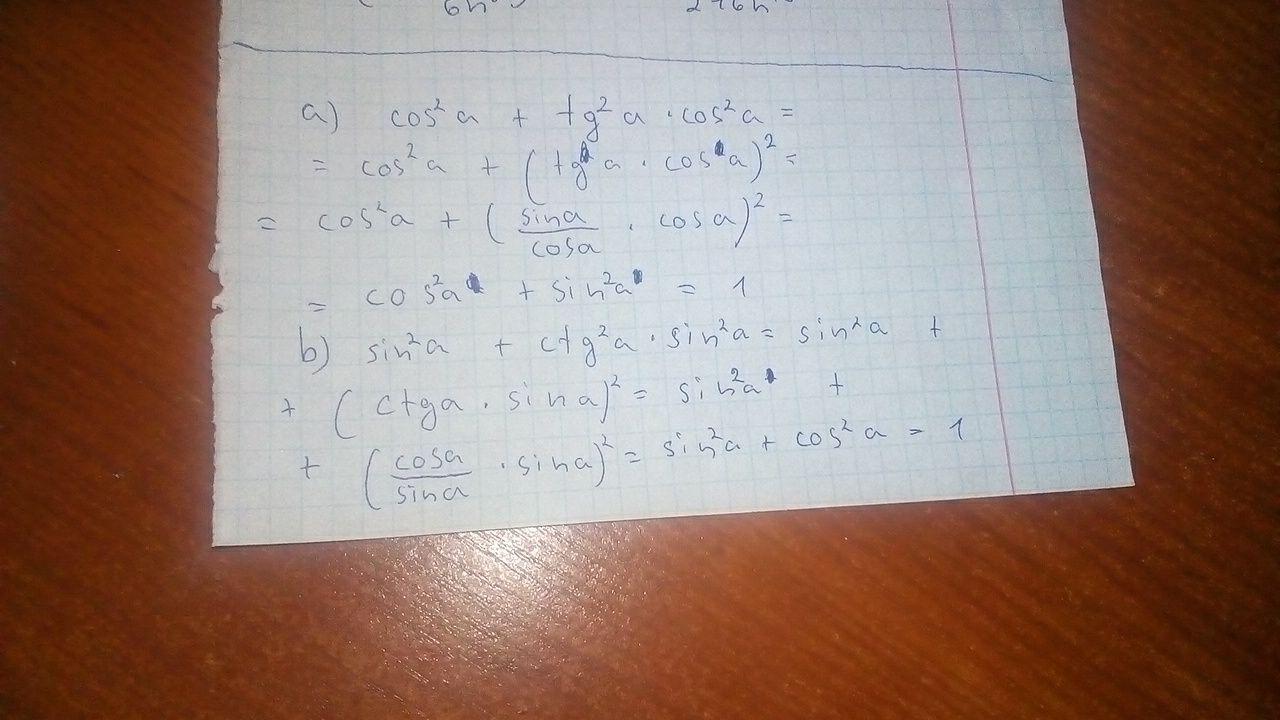 a) cos²a + tg²a · cos²a =
= cos²a + (tg a · cos a)² =
= cos²a + (sina/cosa · cos a)² =
= cos²a + sin²a = 1
b) sin²a + ctg²a · sin²a = sin²a +
+ (ctga · sin a)² = sin²a +
+ (cosa/sina · sina)² = sin²a + cos²a = 1